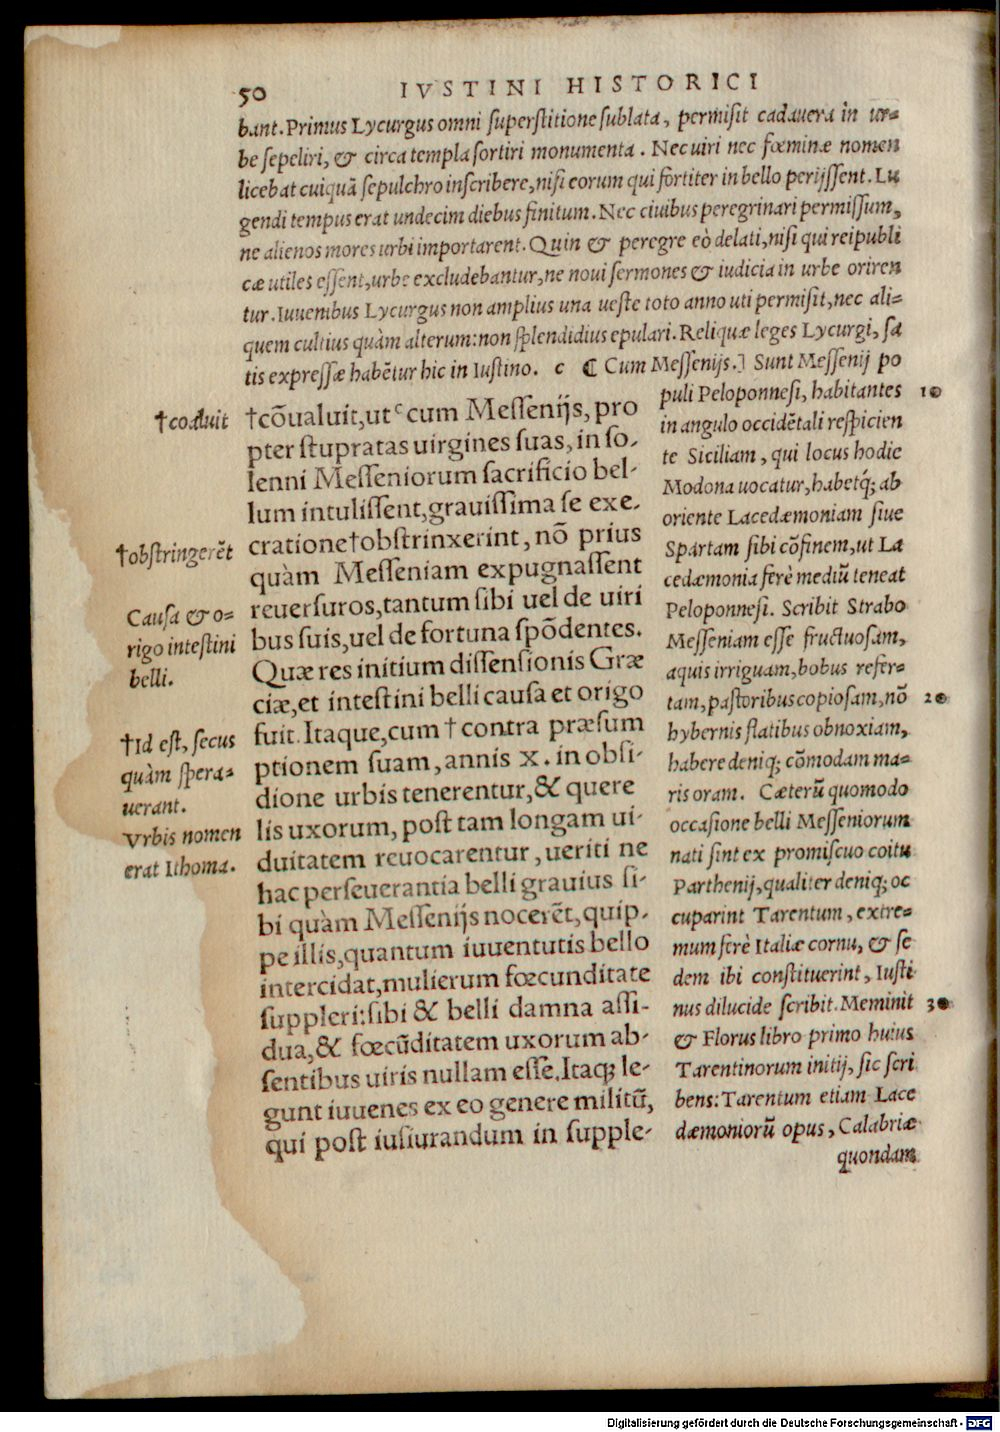 50 IVSTINI HISTORICI
bant. Primus Lycurgus omni superstitione sublata, permisit cadauera in ur=
be sepeliri, & circa templa sortiri monumenta. Nec uiri nec fœminæ nomen
licebat cuiquā sepulchro inscribere, nisi eorum qui fortiter in bello perijssent. Lu
gendi tempus erat undecim diebus finitum. Nec ciuibus peregrinari permissum,
ne alienos mores urbi importarent. Quin & peregre eò delati, nisi qui reipubli
cæ utiles essent, urbe excludebantur, ne noui sermones & iudicia in urbe oriren
tur. Iuuenibus Lycurgus non amplius una ueste toto anno uti permisit, nec ali=
quem cultius quàm alterum: non splendidius epulari. Reliquæ leges Lycurgi, sa
tis expressæ habētur hic in Iustino. c ¶ Cum Messenijs.] Sunt Messenij po
puli Peloponnesi, habitantes 10
in angulo occidētali respicien
te Siciliam, qui locus hodie
Modona uocatur, habetq́; ab
oriente Lacedæmoniam siue
Spartam sibi cōfinem, ut La
cedæmonia ferè mediū teneat
Peloponnesi. Scribit Strabo
Messeniam esse fructuosam,
aquis irriguam, bobus refer=
tam, pastoribus copiosam, nō 20
hybernis flatibus obnoxiam,
habere deniq; cōmodam ma=
ris oram. Cæterū quomodo
occasione belli Messeniorum
nati sint ex promiscuo coitu
Parthenij, qualiter deniq; oc
cuparint Tarentum, extre=
mum ferè Italiæ cornu, & se
dem ibi constituerint, Iusti
nus dilucide scribit. Meminit 30
& Florus libro primo huius
Tarentinorum initij, sic scri
bens: Tarentum etiam Lace
dæmoniorū opus, Calabriæ
quondam
†cōualuit, ut c cum Messenijs, pro
pter stupratas uirgines suas, in so-
lenni Messeniorum sacrificio bel-
lum intulissent, grauissima se exe-
cratione †obstrinxerint, nō prius
quàm Messeniam expugnassent
reuersuros, tantum sibi uel de uiri
bus suis, uel de fortuna spōdentes.
Quæ res initium dissensionis Græ
ciæ, et intestini belli causa et origo
fuit. Itaque, cum † contra præsum
ptionem suam, annis X. in obsi-
dione urbis tenerentur, & quere
lis uxorum, post tam longam ui-
duitatem reuocarentur, ueriti ne
hac perseuerantia belli grauius si-
bi quàm Messenijs nocerēt, quip-
pe illis, quantum iuuentutis bello
intercidat, mulierum fœcunditate
suppleri: sibi & belli damna assi-
dua, & fœcūditatem uxorum ab-
sentibus uiris nullam esse. Itaq; le-
gunt iuuenes ex eo genere militū,
qui post iusiurandum in supple-
†coaluit
†obstringerēt
Causa & o=
rigo intestini
belli.
†Id est, secus
quàm spera=
uerant.
Vrbis nomen
erat Ithoma.
Digitalisierung gefördert durch die Deutsche Forschungsgemeinschaft - DFG